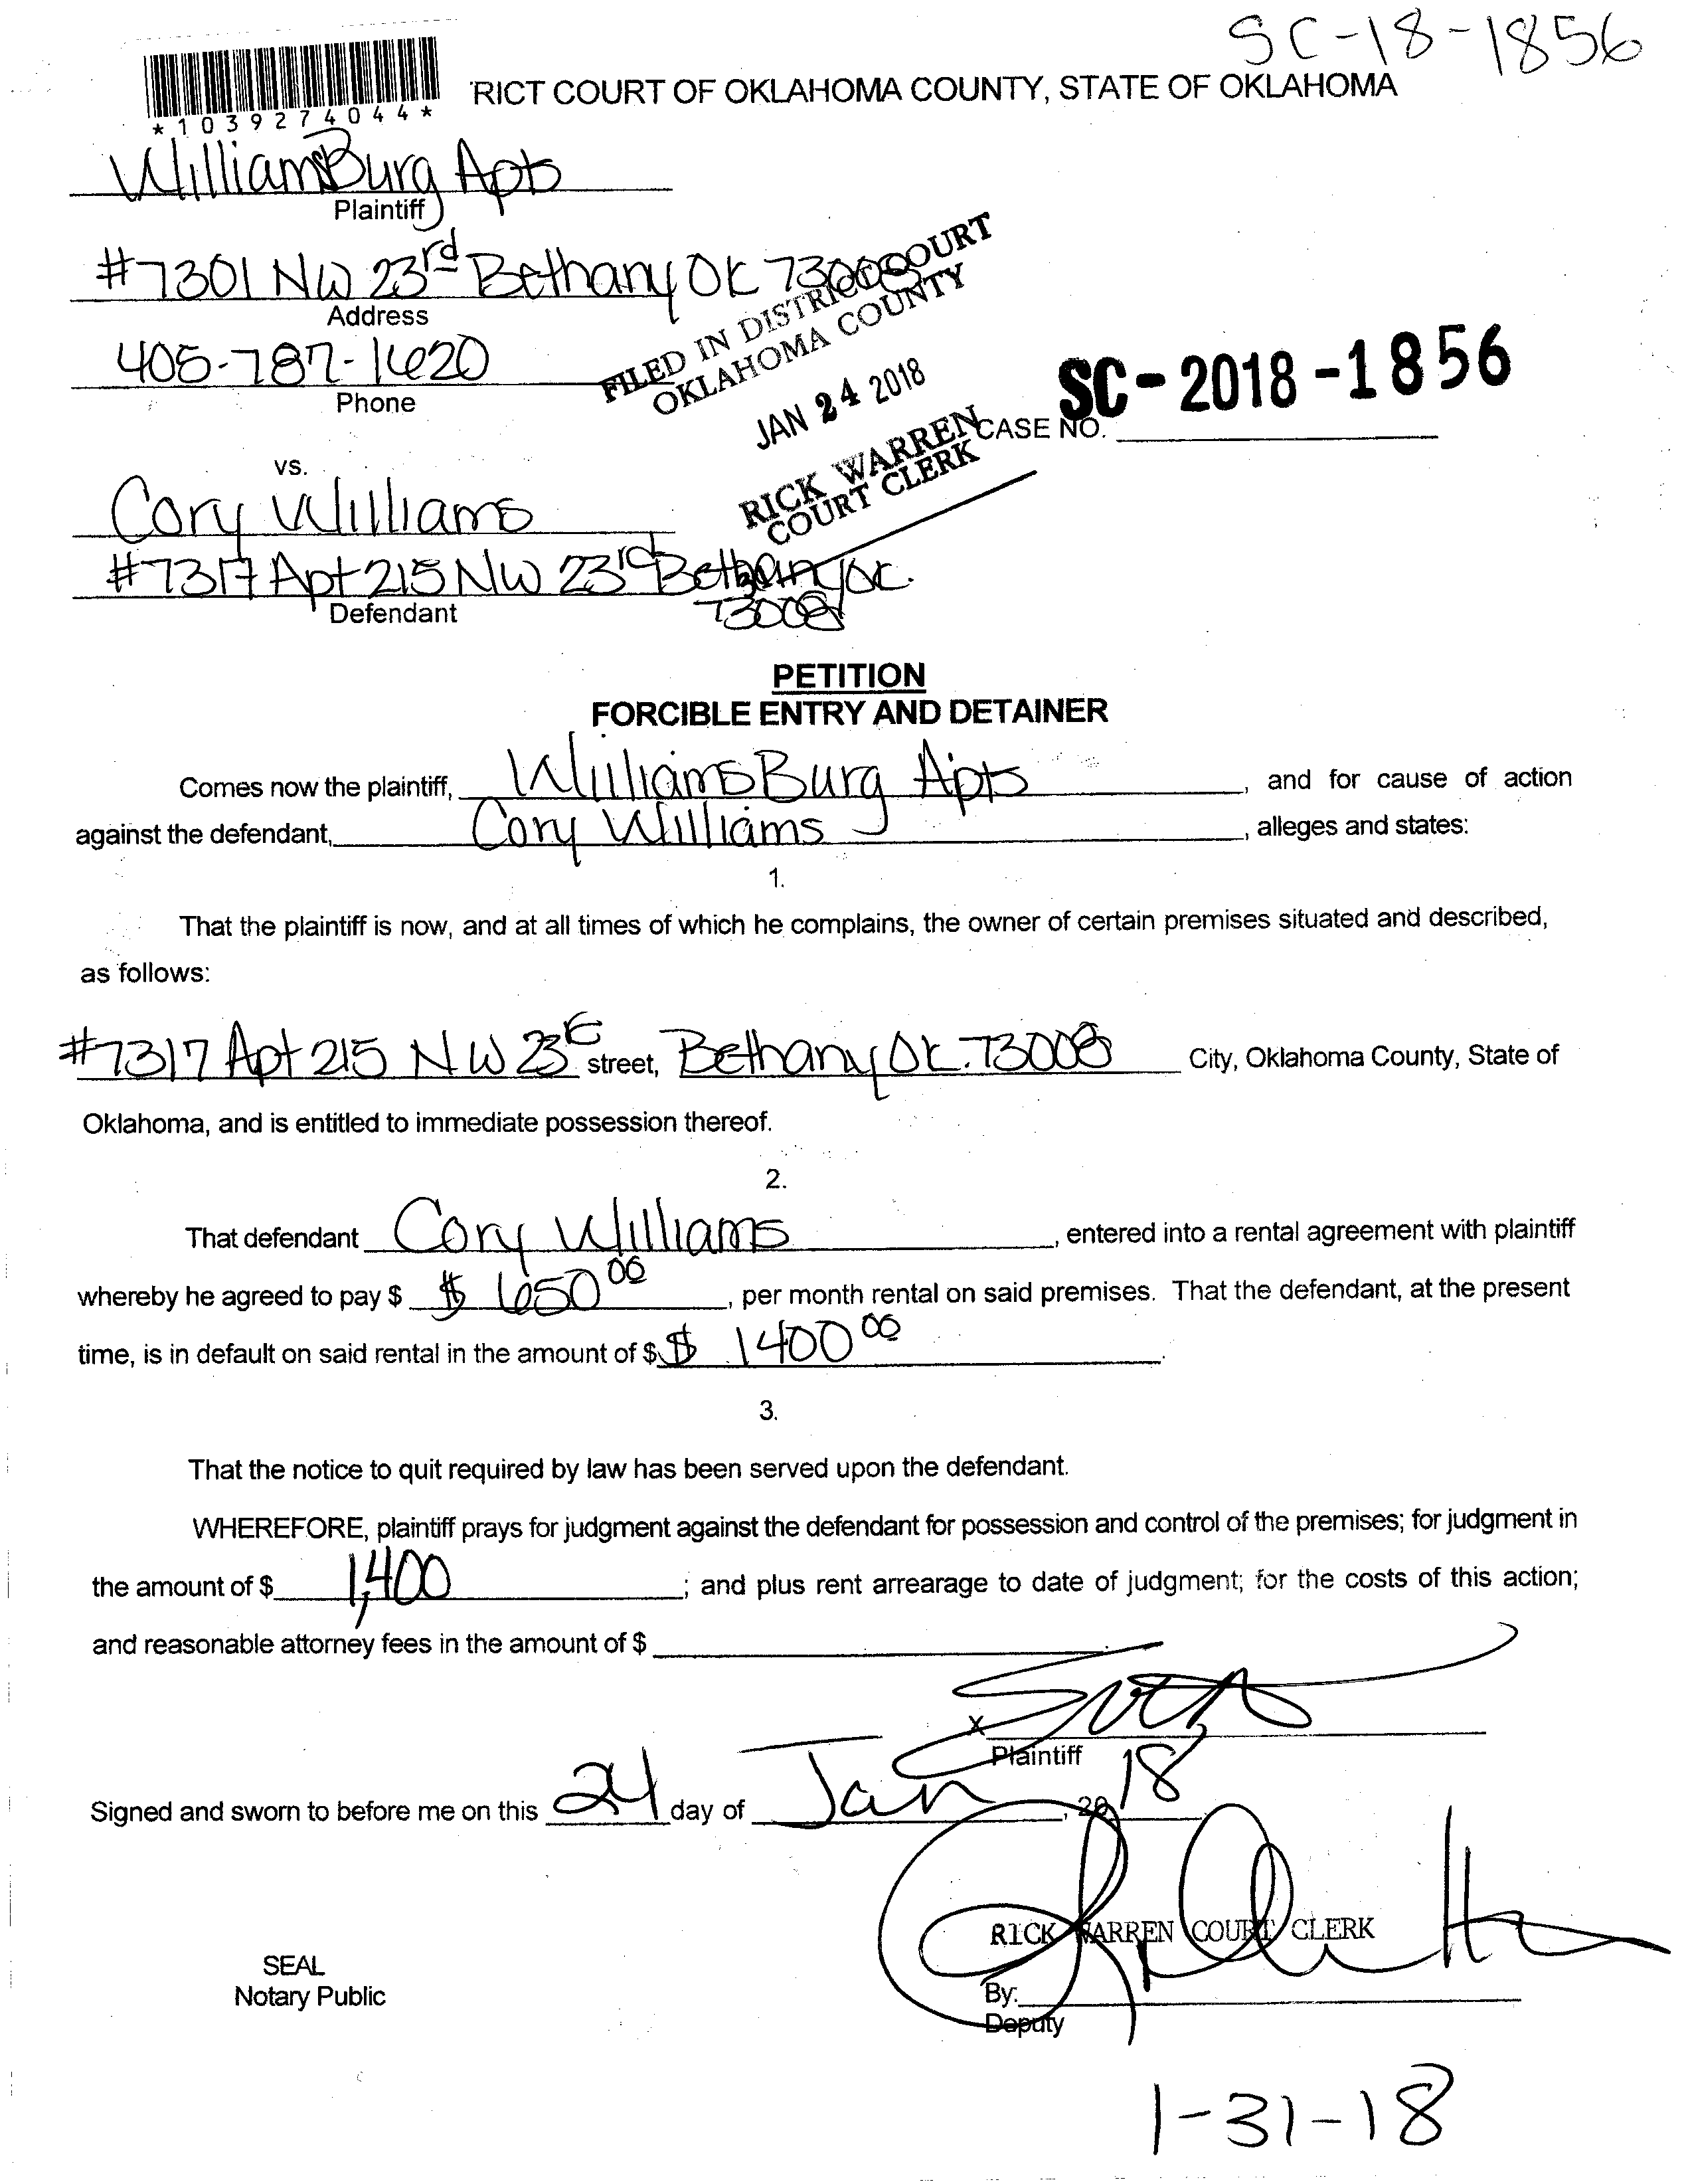 SC-18-1856
*1039274044*
'RICT COURT OF OKLAHOMA COUNTY, STATE OF OKLAHOMA
WilliamsBurg Apts
Plaintiff
#7301 NW 23rd Bethany OK 73008
Address
405-787-1620
Phone
FILED IN DISTRICT COURT
OKLAHOMA COUNTY
JAN 24 2018
RICK WARREN
COURT CLERK
SC-2018-1856
CASE NO.
vs.
Cory Williams
#7317 Apt 215 NW 23rd Bethany OK.
73008
Defendant
PETITION
FORCIBLE ENTRY AND DETAINER
Comes now the plaintiff, WilliamsBurg Apts, and for cause of action
against the defendant, Cory Williams, alleges and states:
1.
That the plaintiff is now, and at all times of which he complains, the owner of certain premises situated and described,
as follows:
#7317 Apt 215 NW 23rd street, Bethany OK. 73008 City, Oklahoma County, State of
Oklahoma, and is entitled to immediate possession thereof.
2.
That defendant Cory Williams, entered into a rental agreement with plaintiff
whereby he agreed to pay $ $ 650 00, per month rental on said premises. That the defendant, at the present
time, is in default on said rental in the amount of $ $ 1400 00.
3.
That the notice to quit required by law has been served upon the defendant.
WHEREFORE, plaintiff prays for judgment against the defendant for possession and control of the premises; for judgment in
the amount of $ 1,400; and plus rent arrearage to date of judgment; for the costs of this action;
and reasonable attorney fees in the amount of $
x
Plaintiff
Signed and sworn to before me on this 24 day of Jan, 20 18
RICK WARREN COURT CLERK
SEAL
Notary Public
By:
Deputy
1-31-18